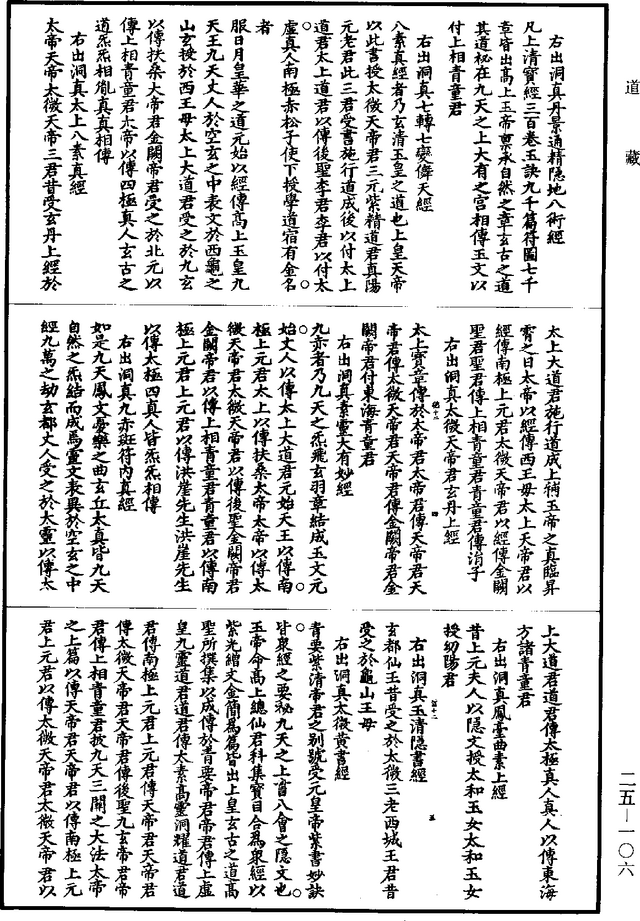 道藏
右出洞真丹景道精隱地八術經
凡上清寶經三百卷玉訣九千篇符圖七千
章皆出高上玉帝稟承自然之章玄古之道
其道祕在九天之上大有之宮相傳玉文以
付上相青童君
右出洞真七轉七變儛天經
八素真經者乃玄清玉皇之道也上皇天帝
以此書授太微天帝君三元紫精道君真陽
元老君此三君受書施行道成後以付太上
道君太上道君以傳後聖李君李君以付太
虛真人南極赤松子使下授學道宿有金名
者
服日月皇華之道元始以經傳高上玉皇九
天王九天丈人於空玄之中表文於西龜之
山玄授於西王母太上大道君受之於九玄
以傳扶桑大帝君金闕帝君受之於北元以
傳上相青童君太帝以傳四極真人玄古之
道炁炁相胤真真相傳
右出洞真太上八素真經
太帝天帝太微天帝三君昔受玄丹上經於
太上大道君施行道成上補玉帝之真臨昇
霄之日太帝以經傳西王母太上天帝君以
經傳南極上元君太微天帝君以經傳金闕
聖君聖君傳上相青童君青童君傳涓子
右出洞真太微天帝君玄丹上經
太上寶章傳於太帝君太帝君傳天帝君天
帝君傳太微天帝君天帝君傳金闕帝君金
闕帝君付東海青童君
右出洞真素靈大有妙經
九赤者乃九天之炁飛玄羽章結成玉文元
始丈人以傳太上大道君元始天王以傳南
極上元君太上以傳扶桑太帝太帝以傳太
微天帝君太微天帝君以傳後聖金闕帝君
金闕帝君以傳上相青童君青童君以傳南
極上元君上元君以傳洪崖先生洪崖先生
以傳太極四真人皆炁炁相傳
右出洞真九赤班符內真經
如是九天鳳文憂樂之曲玄丘太真皆九天
自然之炁結而成焉靈文表異於空玄之中
經九萬之劫玄都丈人受之於太靈以傳太
上大道君道君傳太極真人真人以傳東海
方諸青童君
右出洞真鳳臺曲素上經
昔上元夫人以隱文授太和玉女太和玉女
授幼陽君
右出洞真玉清隱書經
玄都仙王昔受之於太微三老西城王君昔
受之於龜山王母
右出洞真太微黃書經
青要紫清帝君之別號受元皇帝紫書妙訣
皆眾經之要祕九天之上音八會之隱文也
玉帝命高上總仙君科集寶目合為眾經以
紫光繒文金簡為篇皆出上皇玄古之道高
聖所撰集以成傳於青要帝君帝君傳上虛
皇九靈道君道君傳太素高靈洞耀道君道
君傳南極上元君上元君傳天帝君天帝君
傳太微天帝君天帝君傳後聖九玄帝君帝
君傳上相青童君披九天三開之大法太帝
之上篇以傳天帝君天帝君以傳南極上元
君上元君以傳太微天帝君太微天帝君以
二五—一〇六